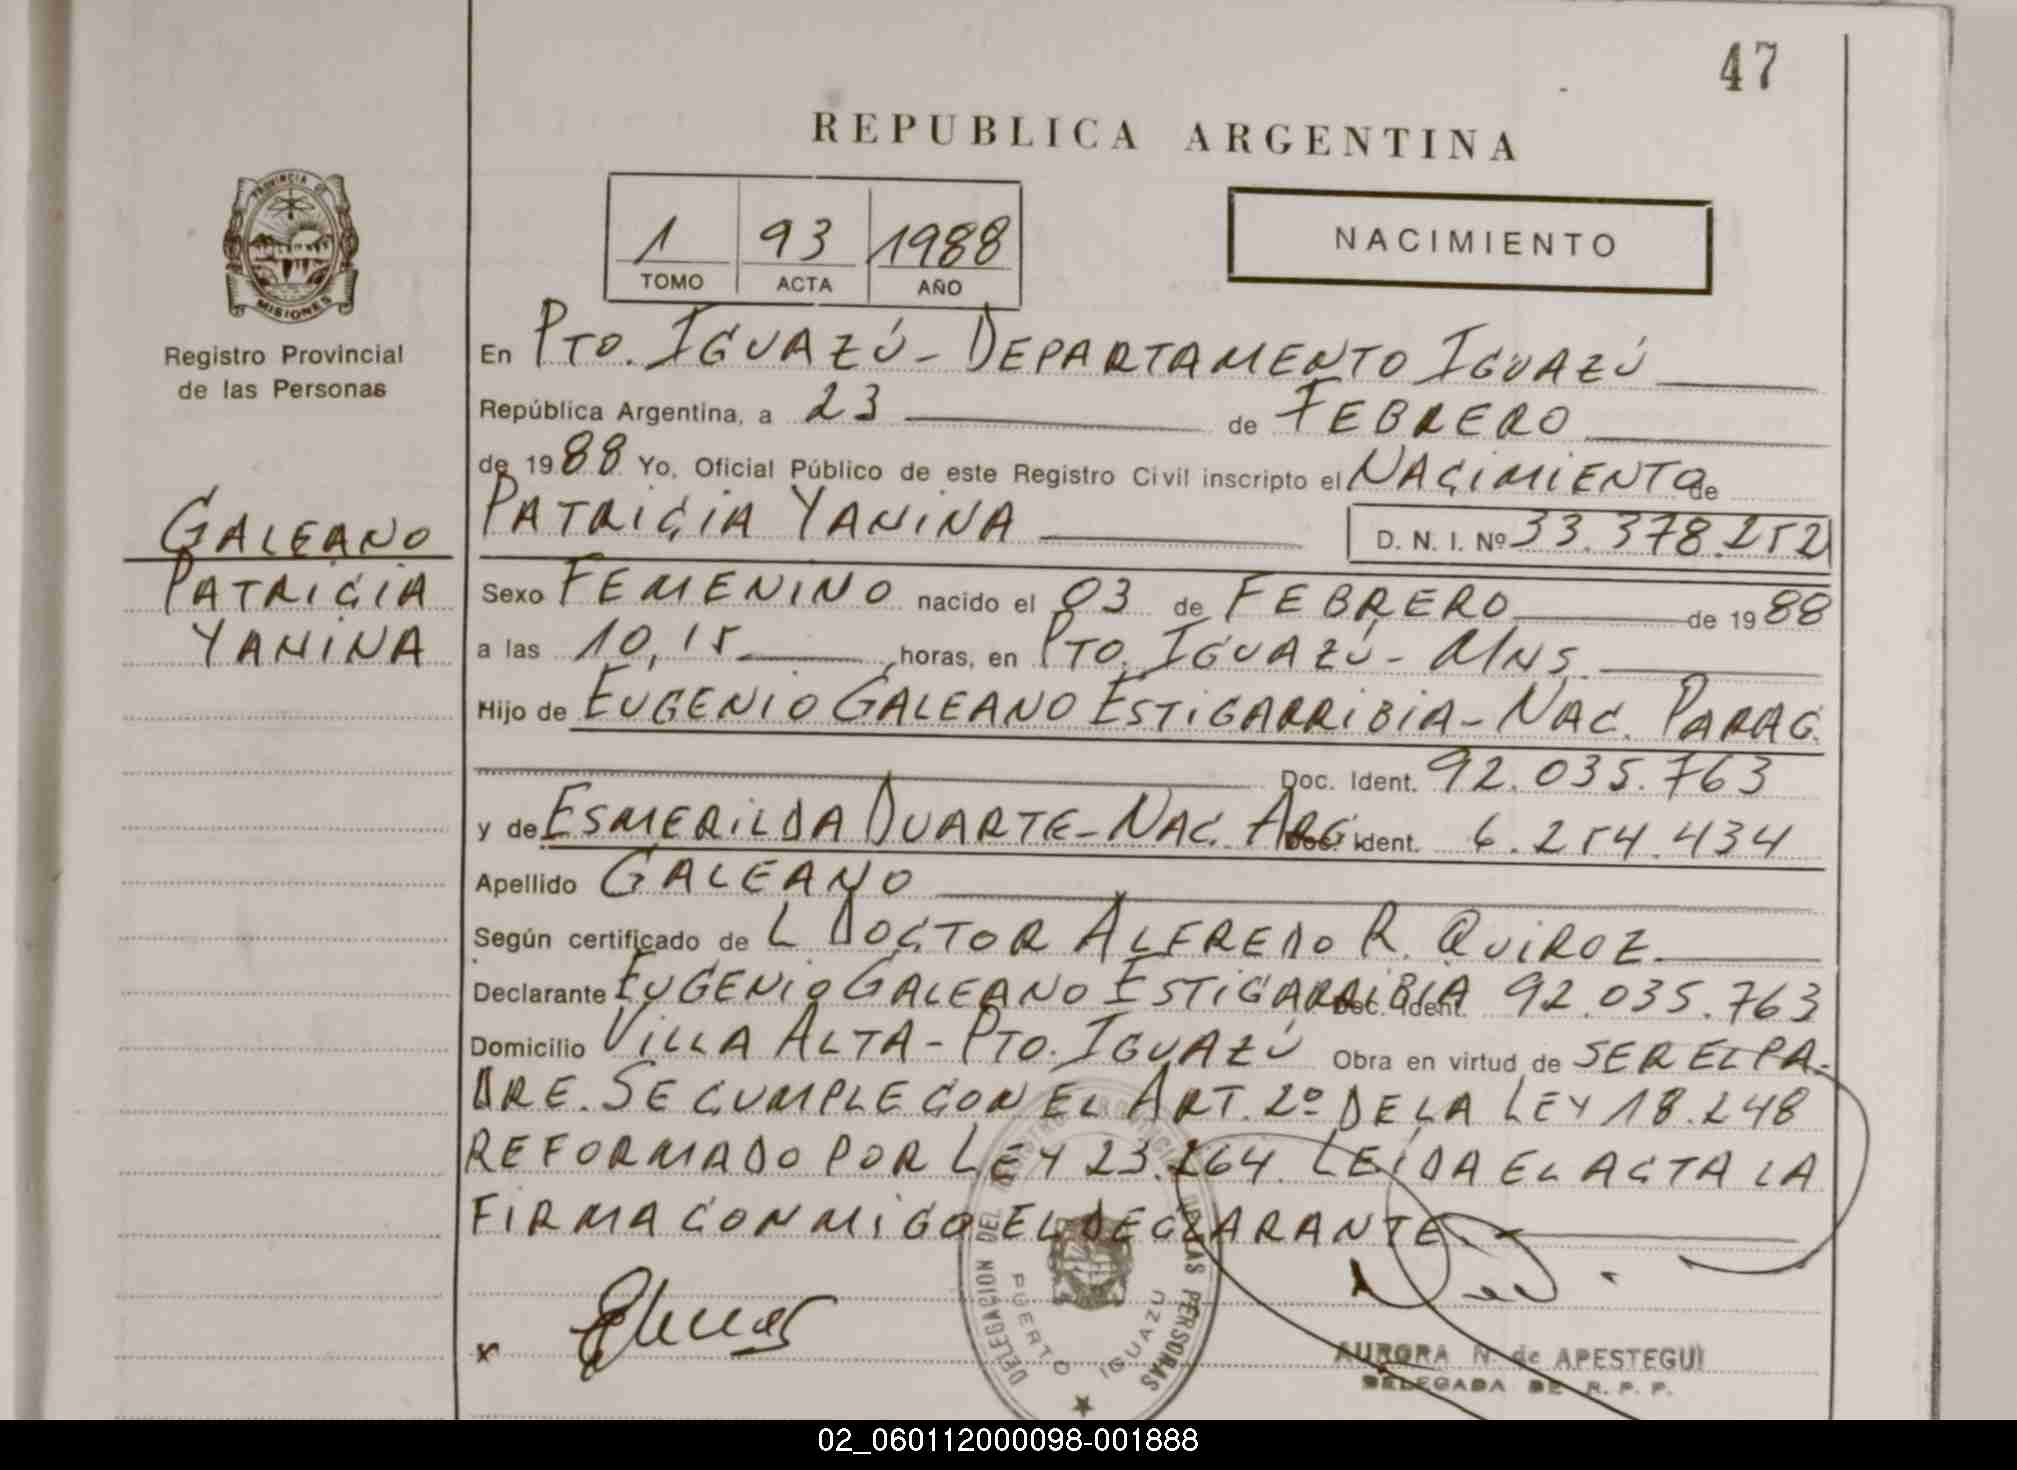 47
REPUBLICA ARGENTINA
PROVINCIA DE
MISIONES
Registro Provincial
de las Personas
1 93 1988
TOMO ACTA AÑO
NACIMIENTO
En PTO. IGUAZÚ - DEPARTAMENTO IGUAZÚ
República Argentina, a 23 de FEBRERO
de 1988 Yo, Oficial Público de este Registro Civil inscripto el NACIMIENTO de
PATRICIA YANINA D. N. I. Nº 33.378.252
GALEANO
PATRICIA
YANINA
Sexo FEMENINO nacido el 03 de FEBRERO de 1988
a las 10,15 horas, en PTO. IGUAZÚ - MNS.
Hijo de EUGENIO GALEANO ESTIGARRIBIA - NAC. PARAG.
Doc. Ident. 92.035.763
y de ESMERILDA DUARTE - NAC. ARG. Doc. Ident. 6.254.434
Apellido GALEANO
Según certificado de L DOCTOR ALFREDO R. QUIROZ.
Declarante EUGENIO GALEANO ESTIGARRIBIA Doc. Ident. 92.035.763
Domicilio VILLA ALTA - PTO. IGUAZÚ Obra en virtud de SER EL PA-
DRE. SE CUMPLE CON EL ART. 2º DE LA LEY 18.248
REFORMADO POR LEY 23.264. LEIDA EL ACTA LA
FIRMA CONMIGO EL DECLARANTE.
DELEGACION DEL REGISTRO PROVINCIAL DE LAS PERSONAS
PUERTO IGUAZU
x
AURORA N. de APESTEGUI
DELEGADA DE R. P. P.
02_060112000098-001888